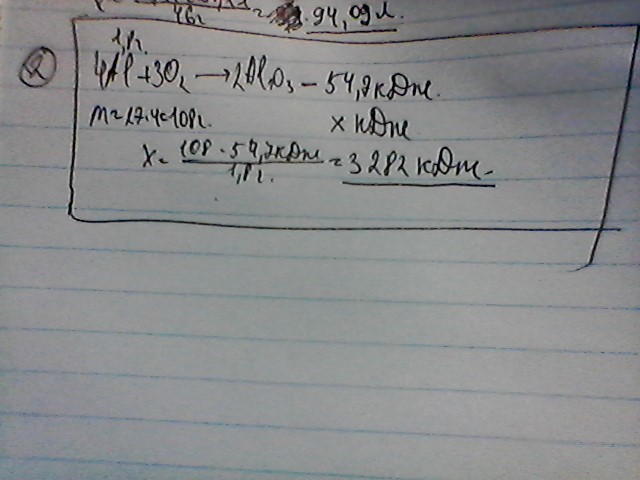 46г = 94,09 л.
2
1,8г.
4Al+3O₂ → 2Al₂O₃ - 54,7 кДж.
m=27·4=108г. x кДж
x = 108 · 54,7 кДж / 1,8г. = 3282 кДж.